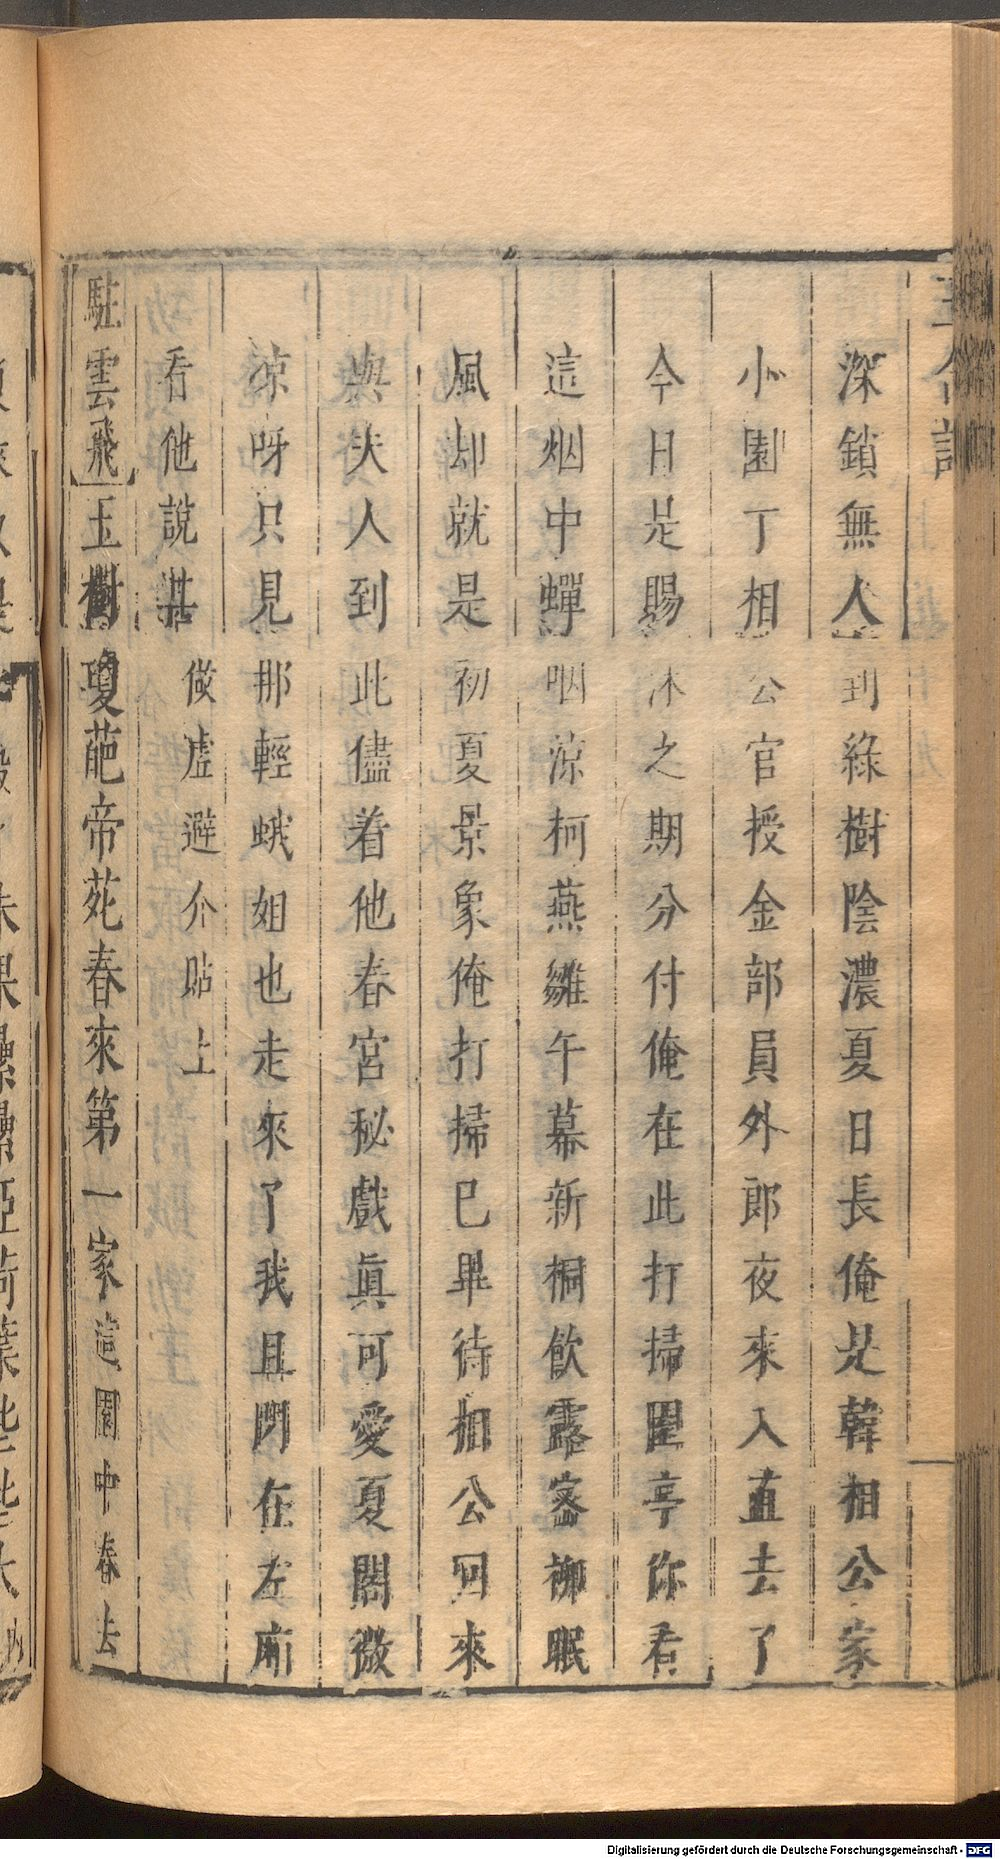 深鎖無人到綠樹陰濃夏日長俺是韓相公家
小園丁相公官授金部員外郎夜來入直去了
今日是賜沐之期分付俺在此打掃園亭你看
這烟中蟬咽涼柯燕雛午幕新桐飲露密柳眠
風却就是初夏景象俺打掃已畢待相公回來
與夫人到此儘着他春宮秘戲眞可愛夏閣微
涼呀只見那輕蛾姐也走來了我且閃在左廂
看他說甚做虛避介貼上
駐雲飛玉樹瓊葩帝苑春來第一家這園中春去
Digitalisierung gefördert durch die Deutsche Forschungsgemeinschaft - DFG